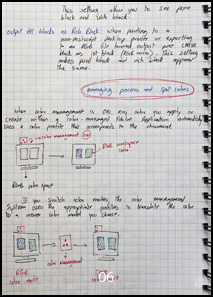 This setting allow you to see pure
black and rich black.
Output All Blacks as Rich Black when printing to a
non-postscript desktop printer or exporting
to an RGB file format output pure CMYK
black as jet black (RGB=000). This setting
makes pure black and rich black appear
the same.
managing process and spot colors
When color management is ON, any color you apply or
create within a color-managed Adobe Application automatically
uses a color profile that corresponds to the document.
color management ON
RGB workspace
color
RGB color space
If you switch color modes the color management
System uses the appropriate profiles to translate the color
to a newer color model you choose.
RGB
color model
color management
06